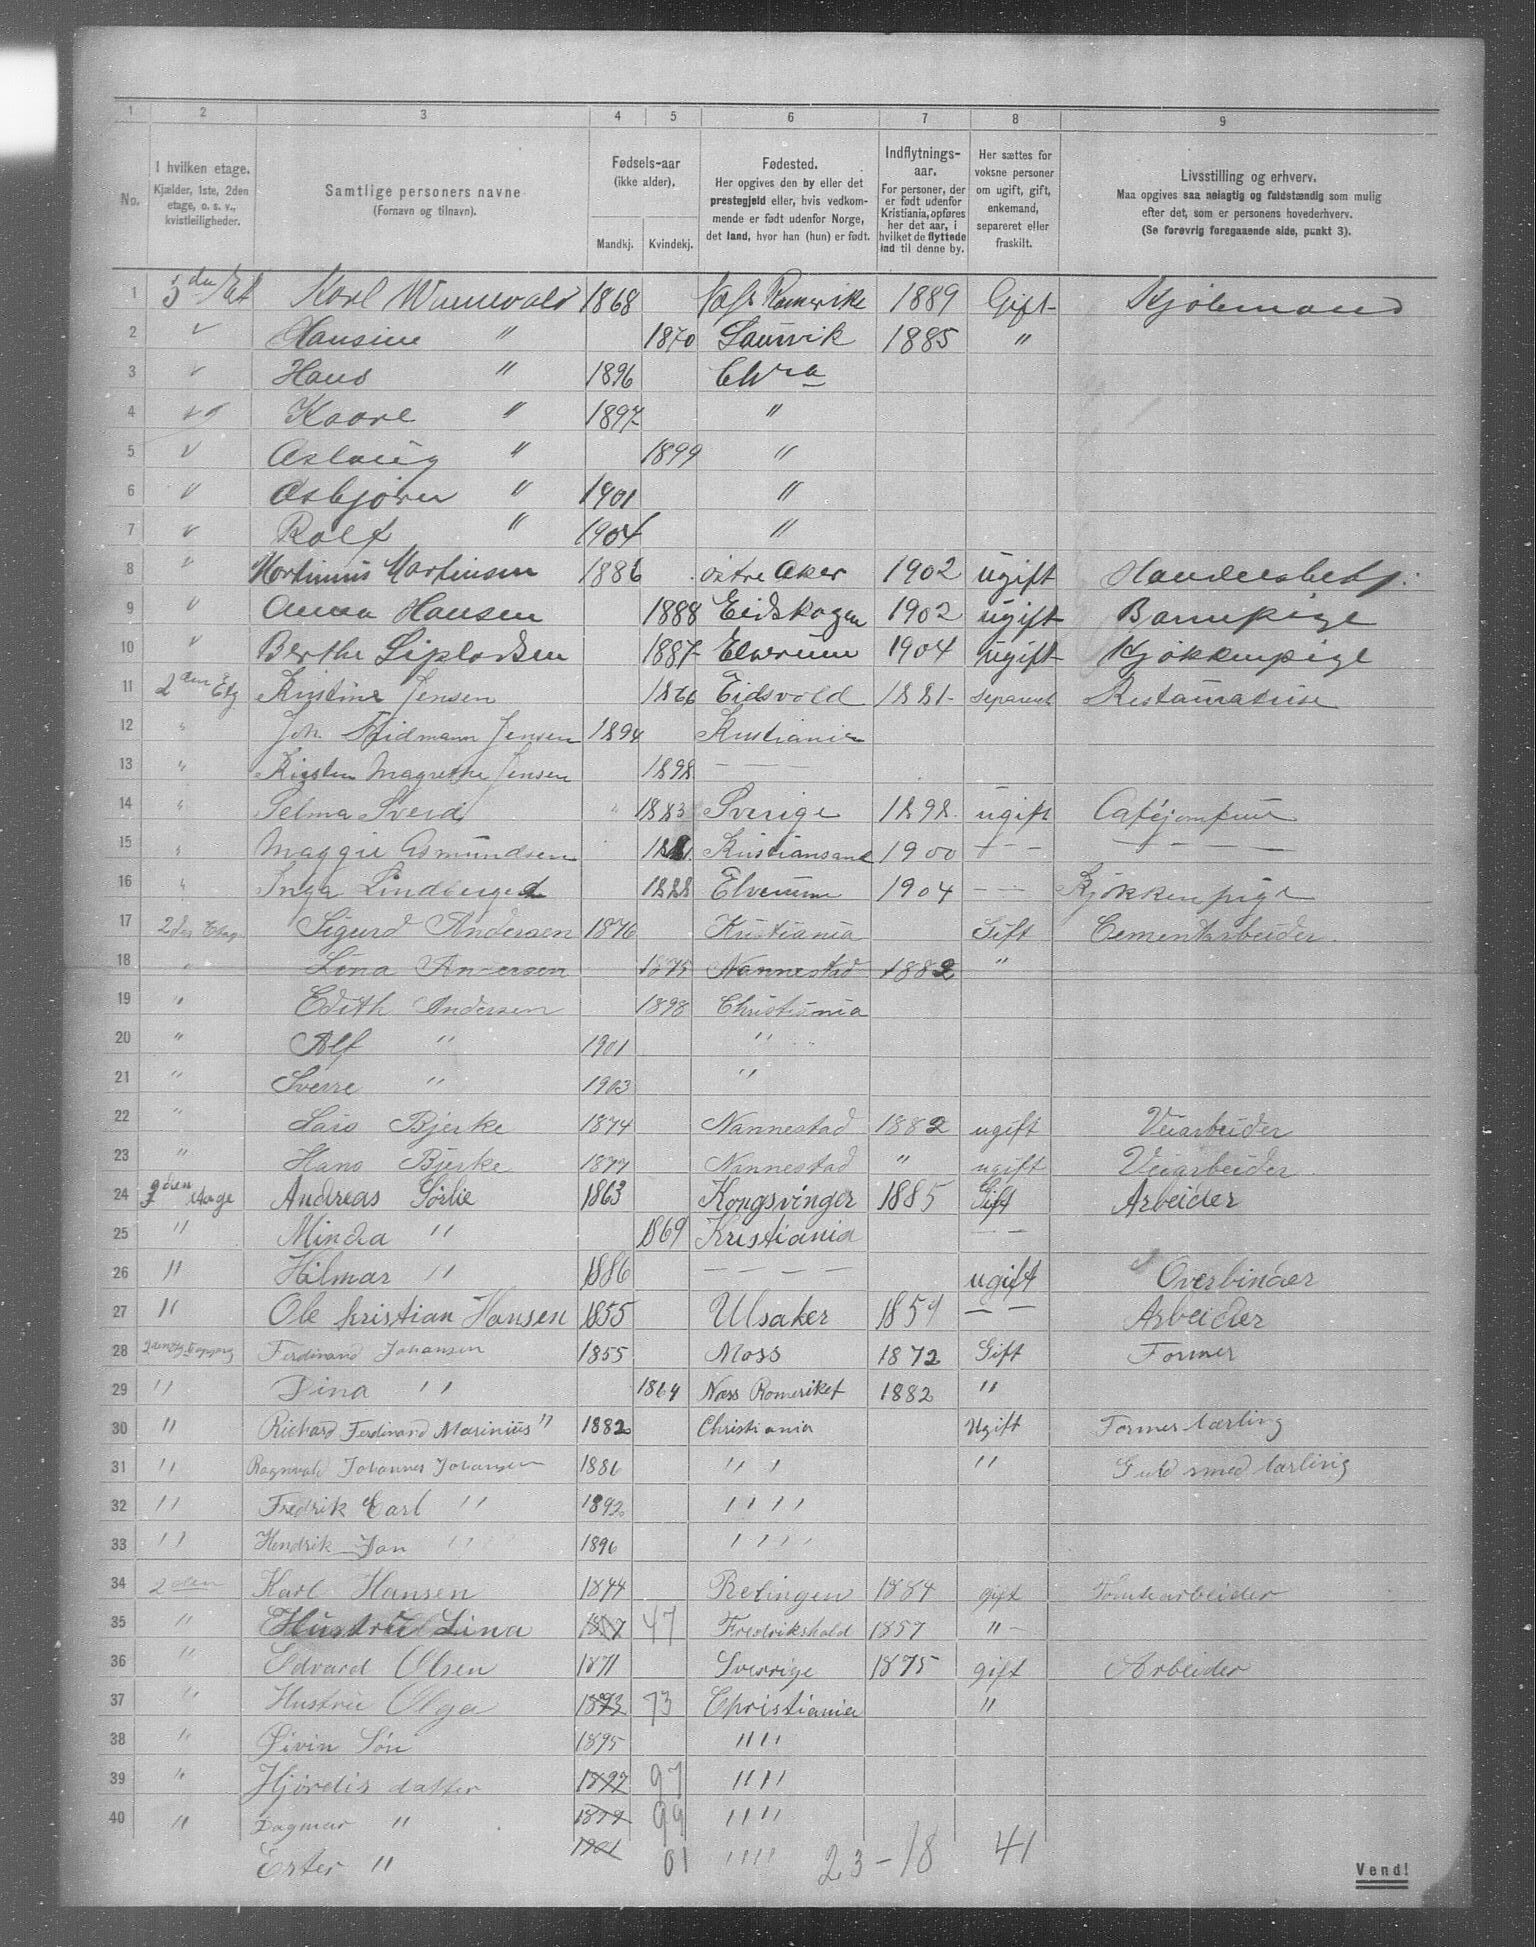 1 2 3 4 5 6 7 8 9
No. I hvilken etage. Kjælder, 1ste, 2den etage, o. s. v., kvistleiligheder. Samtlige personers navne (Fornavn og tilnavn). Fødsels-aar (ikke alder). Mandkj. Kvindekj. Fødested. Her opgives den by eller det prestegjeld eller, hvis vedkommende er født udenfor Norge, det land, hvor han (hun) er født. Indflytnings-aar. For personer, der er født udenfor Kristiania, opføres her det aar, i hvilket de flyttede ind til denne by. Her sættes for voksne personer om ugift, gift, enkemand, separeret eller fraskilt. Livsstilling og erhverv. Maa opgives saa nøiagtig og fuldstændig som mulig efter det, som er personens hovederhverv. (Se forøvrig foregaaende side, punkt 3).
1 Karl 1868 Romerike 1889 Gift
2 Hansine " 1870 1885 "
3 Hans " 1896 Chra
4 Kaare " 1897 "
5 Aslaug " 1899 "
6 Asbjørn " 1901 "
7 Rolf " 1904 "
8 " Martinius Martinsen 1886 østre Aker 1902 ugift
9 Anna Hansen 1888 Eidskogen 1902 ugift Barnepige
10 Berthe 1887 Elverum 1904 ugift Kjøkkenpige
11 2den Etg Kristine Jensen 1866 Eidsvold 1881 separert
12 " Joh. Jensen 1894 Kristiania
13 " Kirsten Magrethe Jensen 1898 — — —
14 " Selma Sverd " 1883 Sverige 1898 ugift Caféjomfru
15 " Maggie Asmundsen Kristiansand 1900 — — — — — —
16 " Inga 1888 Elverum 1904 — — Kjøkkenpige
17 2den Etag Sigurd Andersen 1876 Kristiania Gift Cementarbeider.
18 " Lina Andersen 1875 Nannestad 1882 "
19 " Edith Andersen 1898 Christiania
20 " Alf " 1901 "
21 " Sverre " 1903 "
22 " Lars Bjerke 1874 Nannestad 1882 ugift Veiarbeider
23 " Hans Bjerke 1877 Nannestad " ugift Veiarbeider
24 Andreas Sørlie 1863 Kongsvinger 1885 Gift Arbeider
25 " Mindra " 1869 Kristiania — —
26 " Hilmar " 1886 — — — — ugift Overbinder
27 " Ole kristian Hansen 1855 Ulsaker 1859 — — Arbeider
28 Ferdinand Johansen 1855 Moss 1872 Gift Former
29 " Dina " 1864 Næss Romeriket 1882 "
30 " Richard Ferdinand Marinius " 1882 Christiania Ugift Former lærling
31 " Ragnvald Johannes Johansen 1886 " " " Guld smed lærling
32 " Fredrik Carl " 1892 " "
33 " Hendrik Jan " 1896 " "
34 2den Karl Hansen 1844 1884 gift
35 " Hustru Lina 47 Fredrikshald 1857 " —
36 " Edvard Olsen 1871 Sverrige 1875 gift Arbeider
37 " Hustru Olga 1873 73 Christiania "
38 " Øivin Søn 1895 " "
39 " Hjørdis datter 1897 97 " "
40 " Dagmar " 1899 99 " "
Ester " 1901 01 " " 23 - 18 41
Vend!